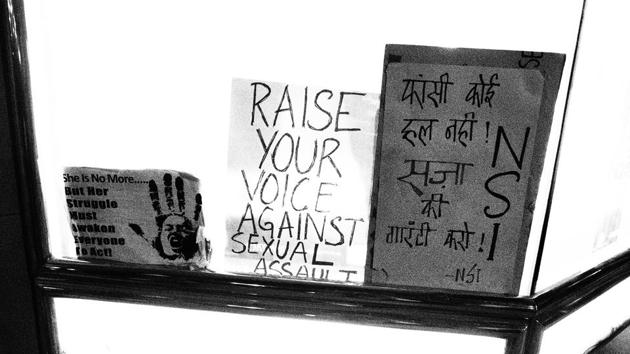 She Is No More.....
But Her
Struggle
Must
Awaken
Everyone
To Act!
RAISE
YOUR
VOICE
AGAINST
SEXUAL
ASSAULT
फांसी कोई
हल नहीं!
सज़ा
की
गारंटी करो!
-NSI
NSI